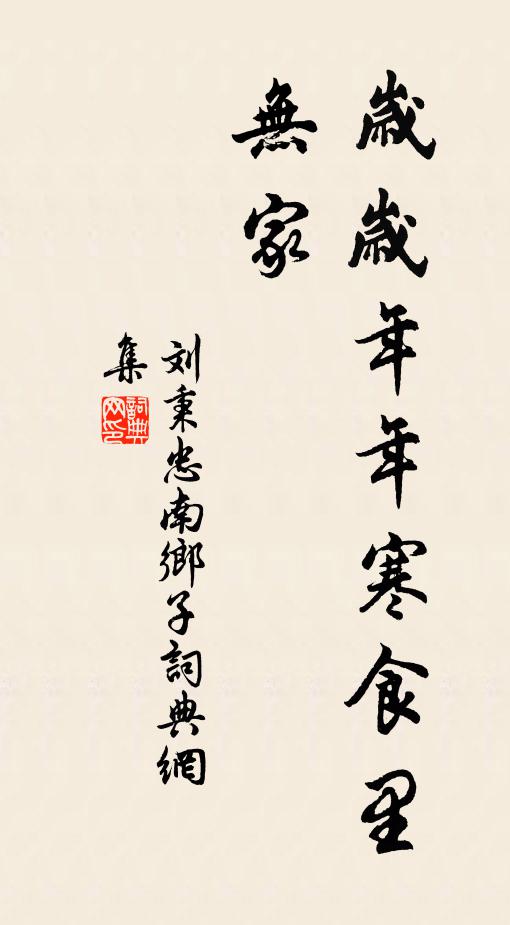 歲歲年年寒食里
無家
刘秉忠南鄉子詞典網
集
詞典
网印